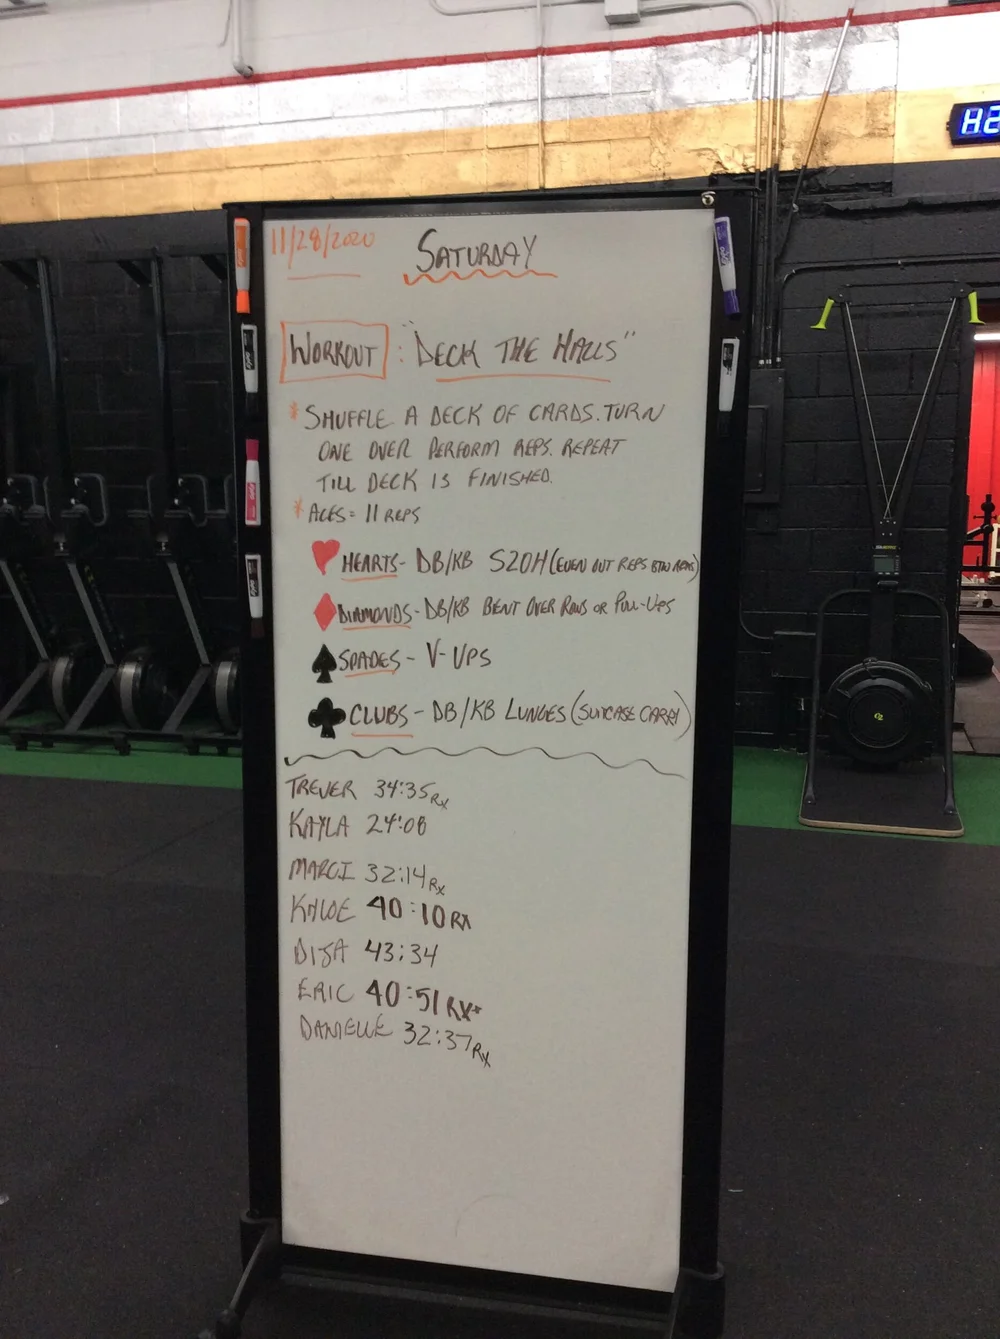 11/28/2020
SATURDAY
WORKOUT : "DECK THE HALLS"
* SHUFFLE A DECK OF CARDS. TURN
ONE OVER PERFORM REPS. REPEAT
TILL DECK IS FINISHED.
* ACES = 11 REPS
HEARTS - DB/KB S2OH (EVEN OUT REPS BTW ARMS)
DIAMONDS - DB/KB BENT OVER ROWS OR PULL-UPS
SPADES - V-UPS
CLUBS - DB/KB LUNGES (SUITCASE CARRY)
TREVER 34:35 RX
KAYLA 24:08
MARCI 32:14 RX
KHLOE 40:10 RX
DIJA 43:34
ERIC 40:51 RX+
DANIELLE 32:37 RX